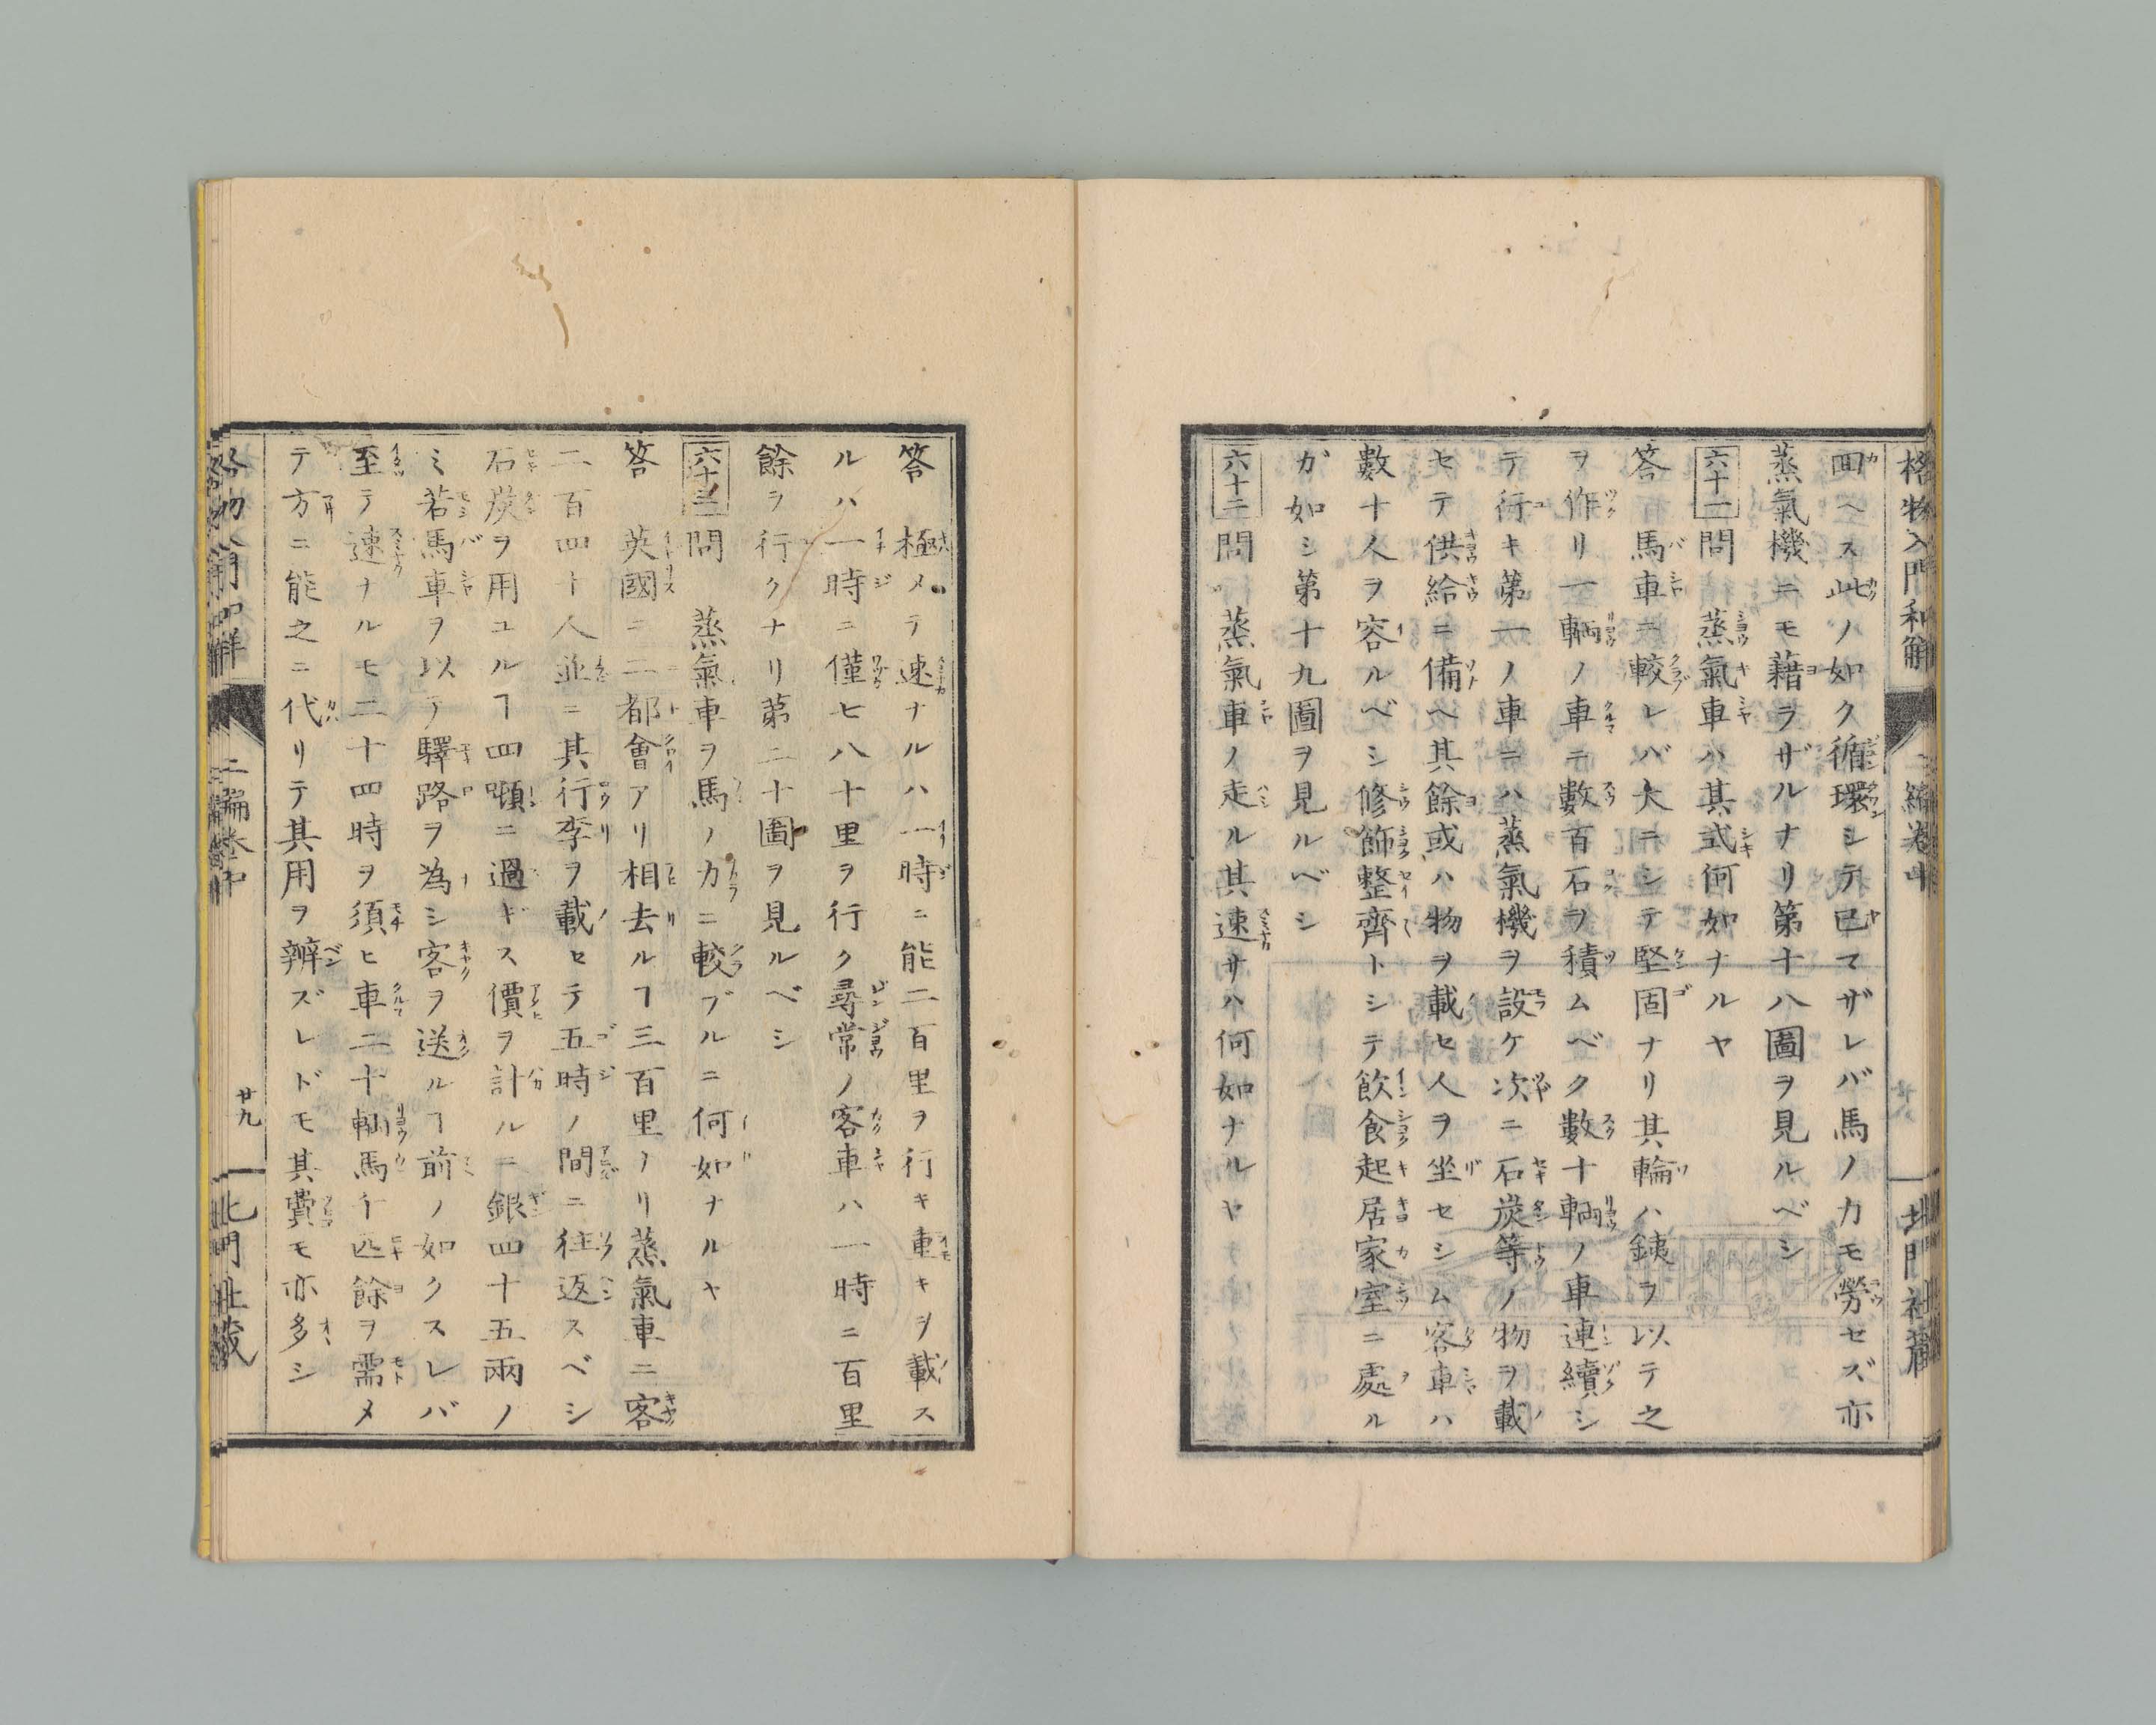 格物入門和解 二編卷中 北門社藏
回ヘス此ノ如ク循環シテ已マザレバ馬ノカモ勞セズ亦
蒸氣機ニモ藉ラザルナリ第十八圖ヲ見ルベシ
六十一問 蒸氣車ハ其式何如ナルヤ
答 馬車ニ較レバ大ニシテ堅固ナリ其輪ハ銕ヲ以テ之
ヲ作リ一輌ノ車ニ數百石ヲ積ムベク數十輌ノ車連續シ
テ行キ第一ノ車ニハ蒸氣機ヲ設ケ次ニ石炭等ノ物ヲ載
セテ供給ニ備ヘ其餘或ハ物ヲ載セ人ヲ坐セシム客車ハ
數十人ヲ容ルベシ修飾整齊トシテ飲食起居家室ニ處ル
ガ如シ第十九圖ヲ見ルベシ
六十二問 蒸氣車ノ走ル其速サハ何如ナルヤ
答 極メテ速ナルハ一時ニ能二百里ヲ行キ重キヲ載ス
ルハ一時ニ僅七八十里ヲ行ク尋常ノ客車ハ一時ニ百里
餘ヲ行クナリ第二十圖ヲ見ルベシ
六十三問 蒸氣車ヲ馬ノカニ較ブルニ何如ナルヤ
答 英國ニ二都會アリ相去ルヿ三百里ナリ蒸氣車ニ客
二百四十人並ニ其行李ヲ載セテ五時ノ間ニ往返スベシ
石炭ヲ用ユルヿ四噸ニ過ギス價ヲ計ルニ銀四十五兩ノ
ミ若馬車ヲ以テ驛路ヲ為シ客ヲ送ルヿ前ノ如クスレバ
至テ速ナルモ二十四時ヲ須ヒ車二十輌馬千匹餘ヲ需メ
テ方ニ能之ニ代リテ其用ヲ辨ズレドモ其費モ亦多シ
格物入門和解 二編卷中 廿九 北門社藏